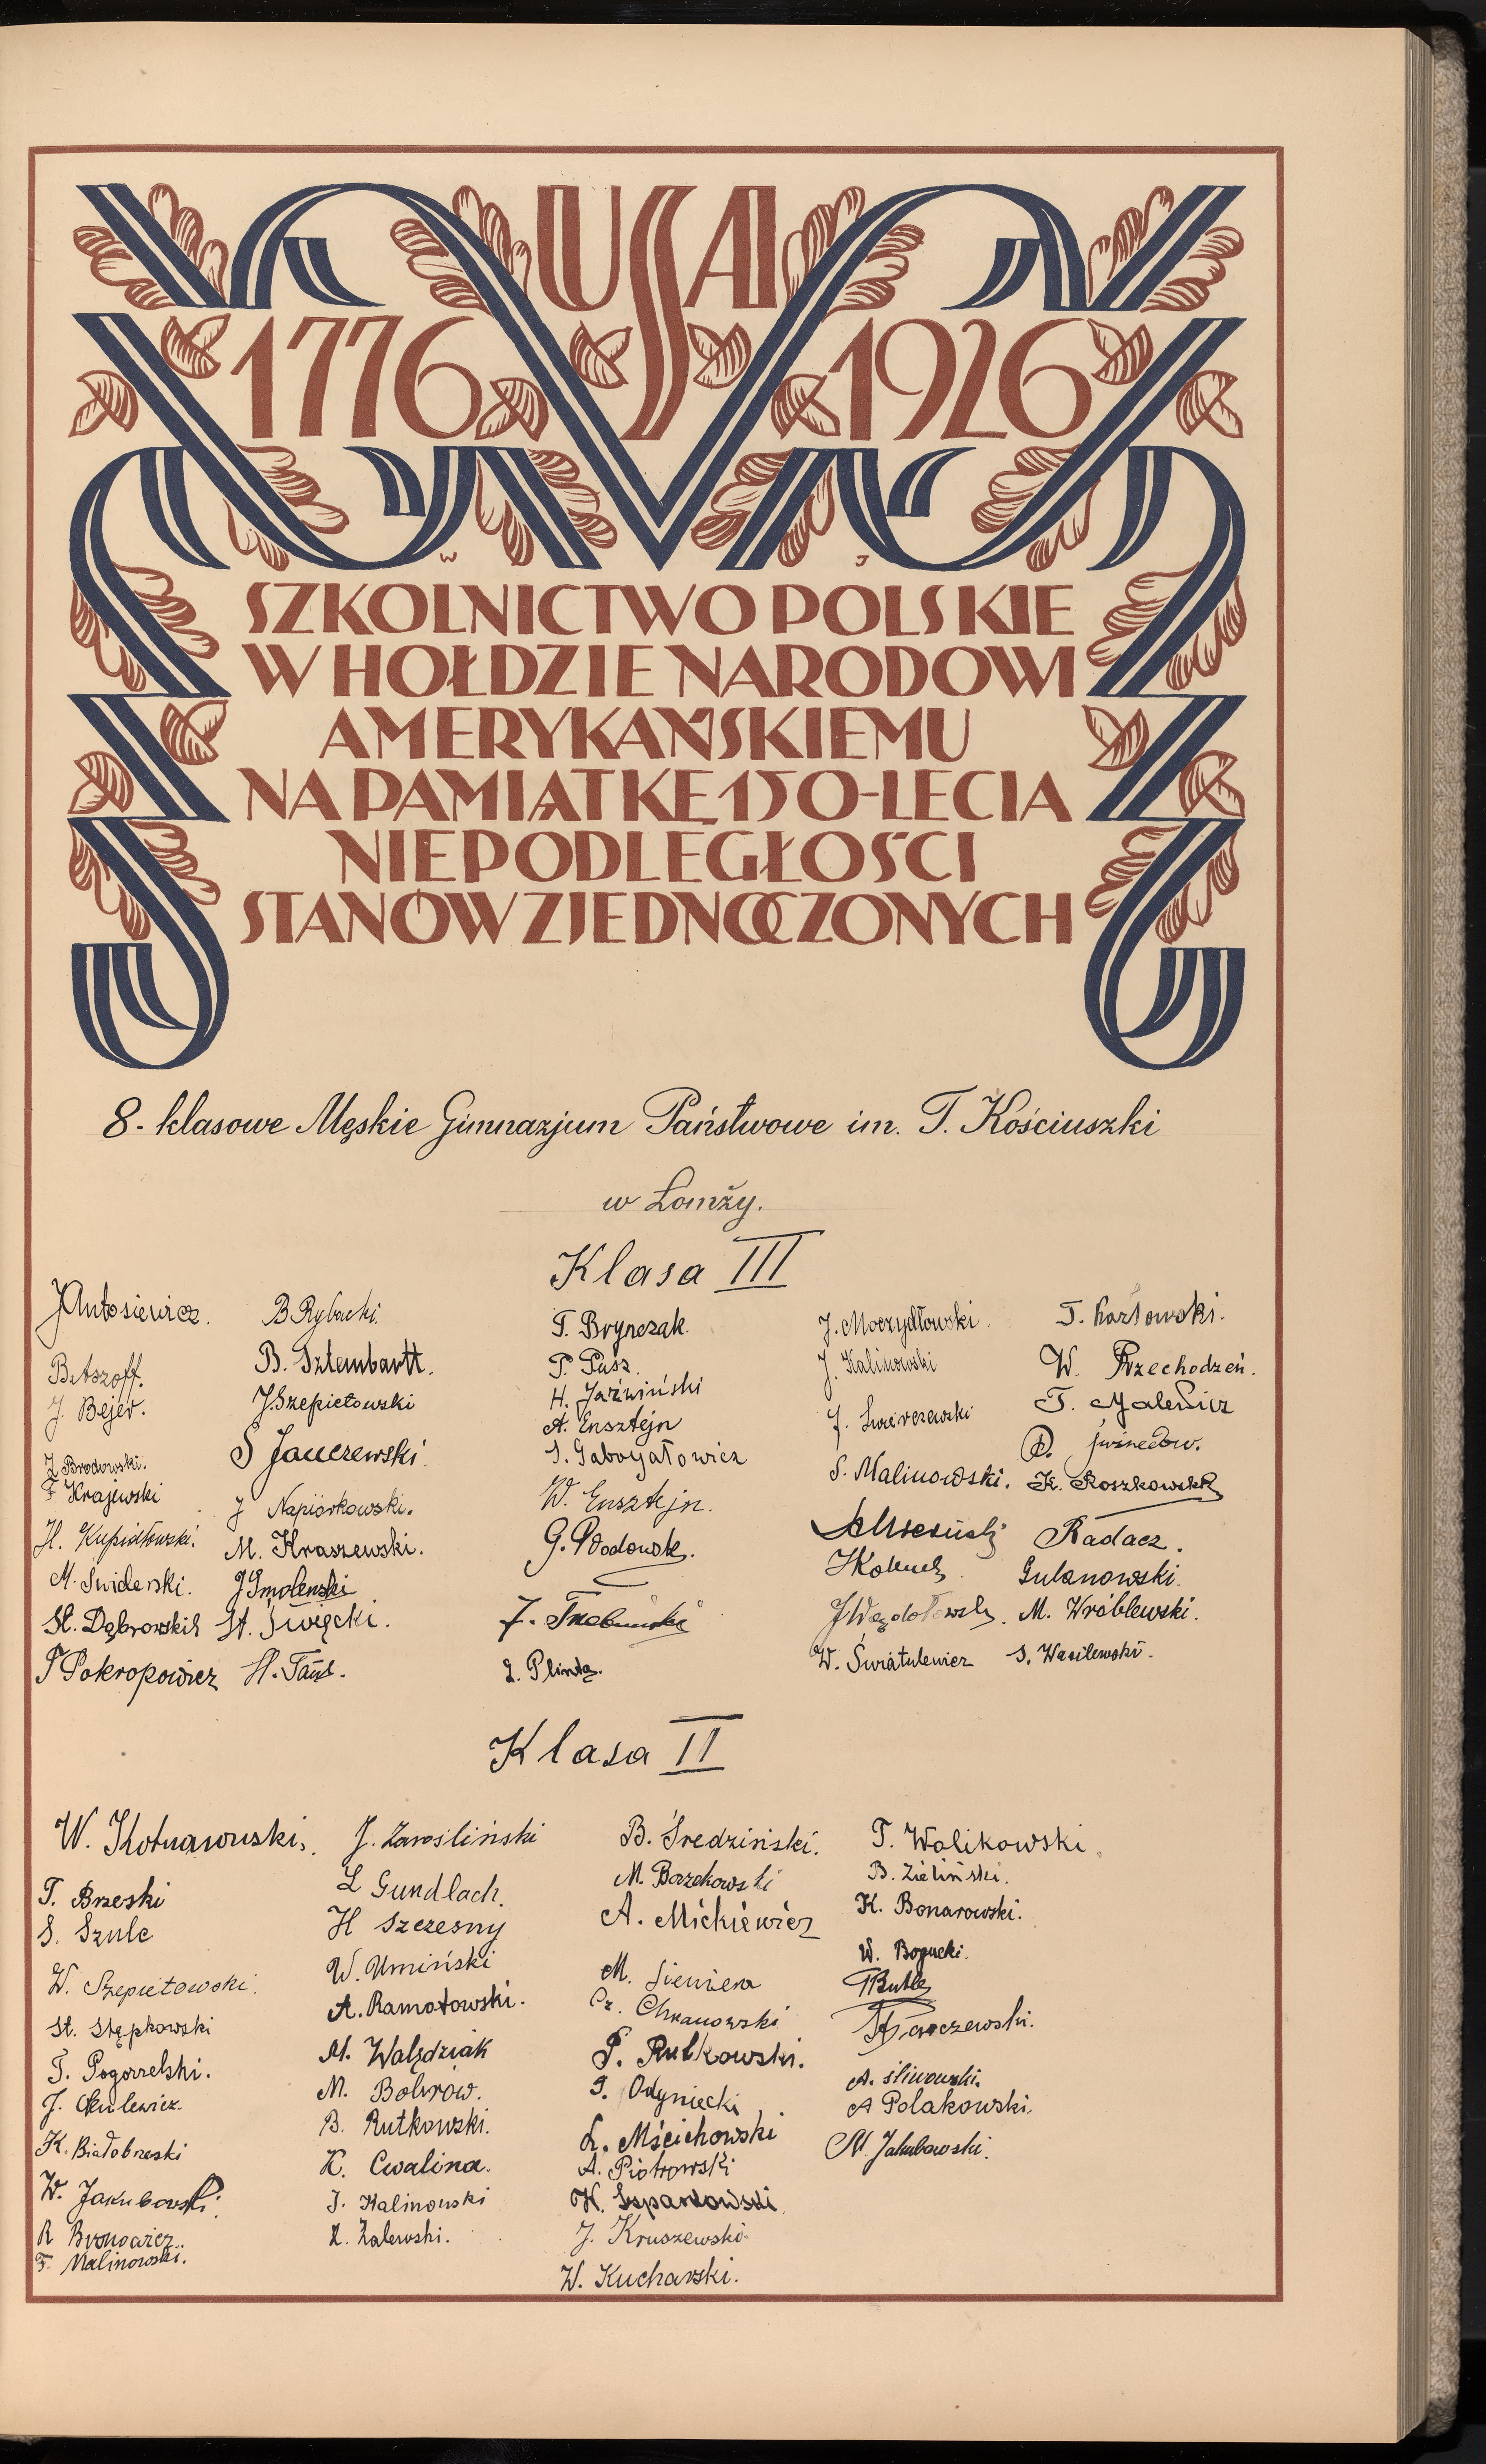 USA
1776 1926
SZKOLNICTWO POLSKIE
W HOŁDZIE NARODOWI
AMERYKAŃSKIEMU
NA PAMIĄTKĘ 150-LECIA
NIEPODLEGŁOŚCI
STANÓW ZJEDNOCZONYCH
8-klasowe Męskie Gimnazjum Państwowe im. T. Kościuszki
w Łomży.
Klasa III
J Antosiewicz.
B. Aszoff.
J. Bejer.
J. Brodowski.
F Krajewski
H. Kupidłowski.
M. Świderski.
St. Dąbrowski
T Pokropowicz
B Rybacki.
B. Sztembartt.
J. Szepietowski
S Janczewski.
J Napiórkowski.
M. Kraszewski.
J Smolenski
St. Święcki.
H.
T. Brynczak.
T. Pusz.
H. Jaźwiński
A. Ensztejn
W. Ensztejn.
G.
L. Plinta.
J. Moczydłowski.
J. Kalinowski
J.
S. Malinowski.
W. Światulewicz
T. Kozłowski.
W. Przechodzeń.
T.
K. Roszkowski
Radacz.
Gulanowski.
M. Wróblewski.
S. Wasilewski.
Klasa II
W. Kotnarowski.
T. Brzeski
S. Szulc
W. Szepietowski.
St. Stępkowski
T. Pogorzelski.
J.
K. Białobrzeski
W. Jakubowski.
R Bronowicz.
F. Malinowski.
J. Zarośliński
L Gundlach.
H Szczesny
W. Umiński
A. Ramotowski.
M. Walędziak
M. Bobrów.
B. Rutkowski.
K. Cwalina.
J. Kalinowski
Z. Zalewski.
B. Średziński.
M. Borzchowski
A. Mickiewicz
M. Sieniera
Cz. Chranowski
P. Rutkowski.
J. Odyniecki
L. Mścichowski
A. Piotrowski
K. Szparkowski
J. Kruszewski
W. Kucharski.
T. Wolikowski.
B. Zieliński.
K. Bonarowski.
W. Bogucki.
A. Śliwowski.
A Polakowski.
M. Jakubowski.